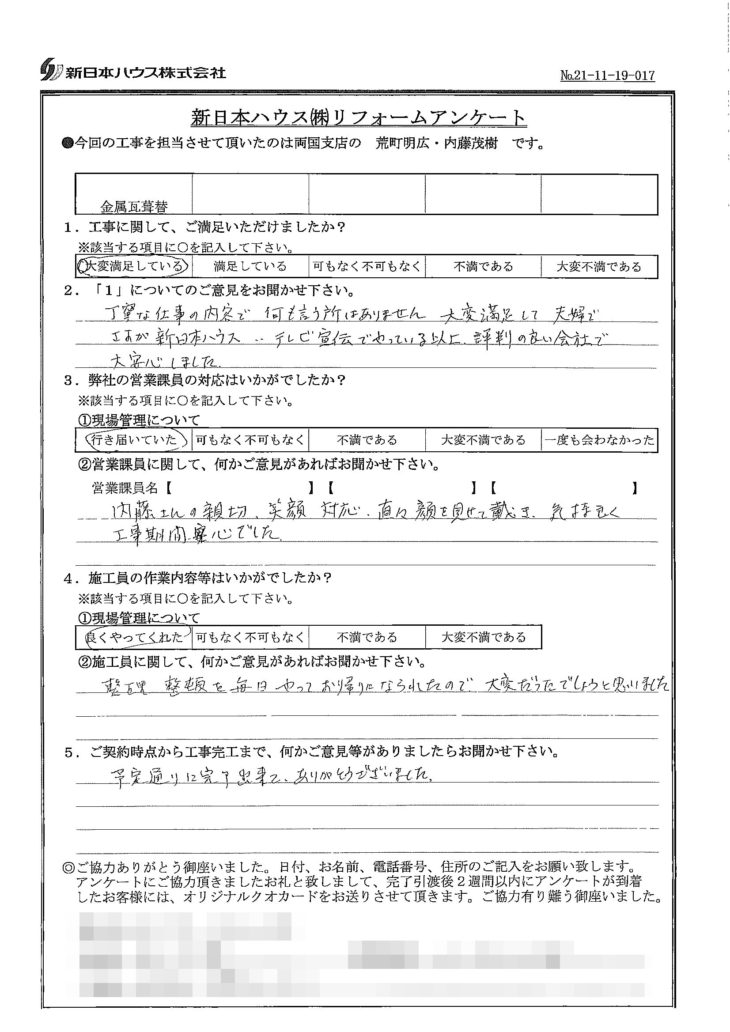 新日本ハウス株式会社
No.21-11-19-017
新日本ハウス㈱リフォームアンケート
●今回の工事を担当させて頂いたのは両国支店の 荒町明広・内藤茂樹 です。
金属瓦葺替
1．工事に関して、ご満足いただけましたか？
※該当する項目に○を記入して下さい。
大変満足している 満足している 可もなく不可もなく 不満である 大変不満である
2．「1」についてのご意見をお聞かせ下さい。
丁寧な仕事の内容で 何も言う所はありません 大変満足して 夫婦で
新日本ハウス‥テレビ宣伝でやっている以上、評判の良い会社で
大安心しました
3．弊社の営業課員の対応はいかがでしたか？
※該当する項目に○を記入して下さい。
①現場管理について
行き届いていた 可もなく不可もなく 不満である 大変不満である 一度も会わなかった
②営業課員に関して、何かご意見があればお聞かせ下さい。
営業課員名【 】【 】【 】
内藤さんの親切、笑顔 対応、直々顔を見せて戴き、気持良く
工事期間、安心でした
4．施工員の作業内容等はいかがでしたか？
※該当する項目に○を記入して下さい。
①現場管理について
良くやってくれた 可もなく不可もなく 不満である 大変不満である
②施工員に関して、何かご意見があればお聞かせ下さい。
整理 整頓を毎日やってお帰りになられたので 大変だったでしょうと思いました
5．ご契約時点から工事完工まで、何かご意見等がありましたらお聞かせ下さい。
予定通りに完了出来て、ありがとうございました。
◎ご協力ありがとう御座いました。日付、お名前、電話番号、住所のご記入をお願い致します。
アンケートにご協力頂きましたお礼と致しまして、完了引渡後２週間以内にアンケートが到着
したお客様には、オリジナルクオカードをお送りさせて頂きます。ご協力有り難う御座いました。